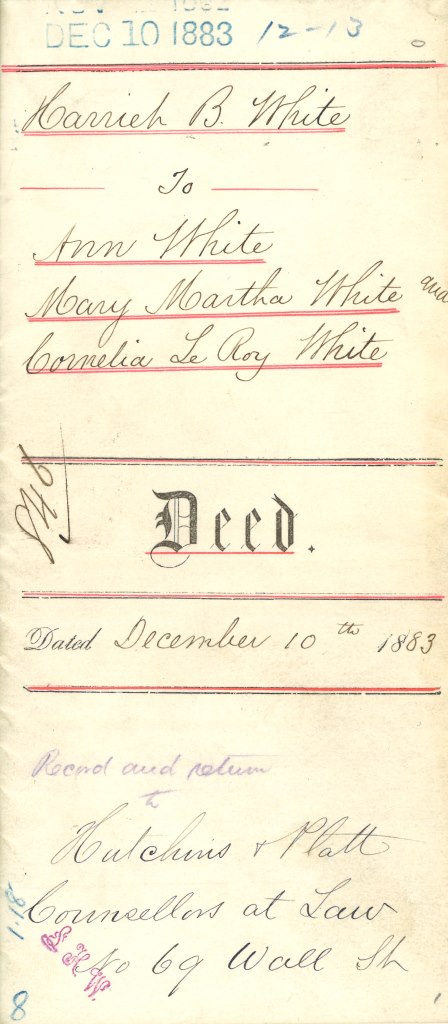 DEC 10 1883 12-13
Harriet B. White
To
Ann White
Mary Martha White and
Cornelia Le Roy White
846
Deed.
Dated December 10th 1883
Record and return
to
Hutchins & Platt
Counsellors at Law
No 69 Wall St
1-18
8